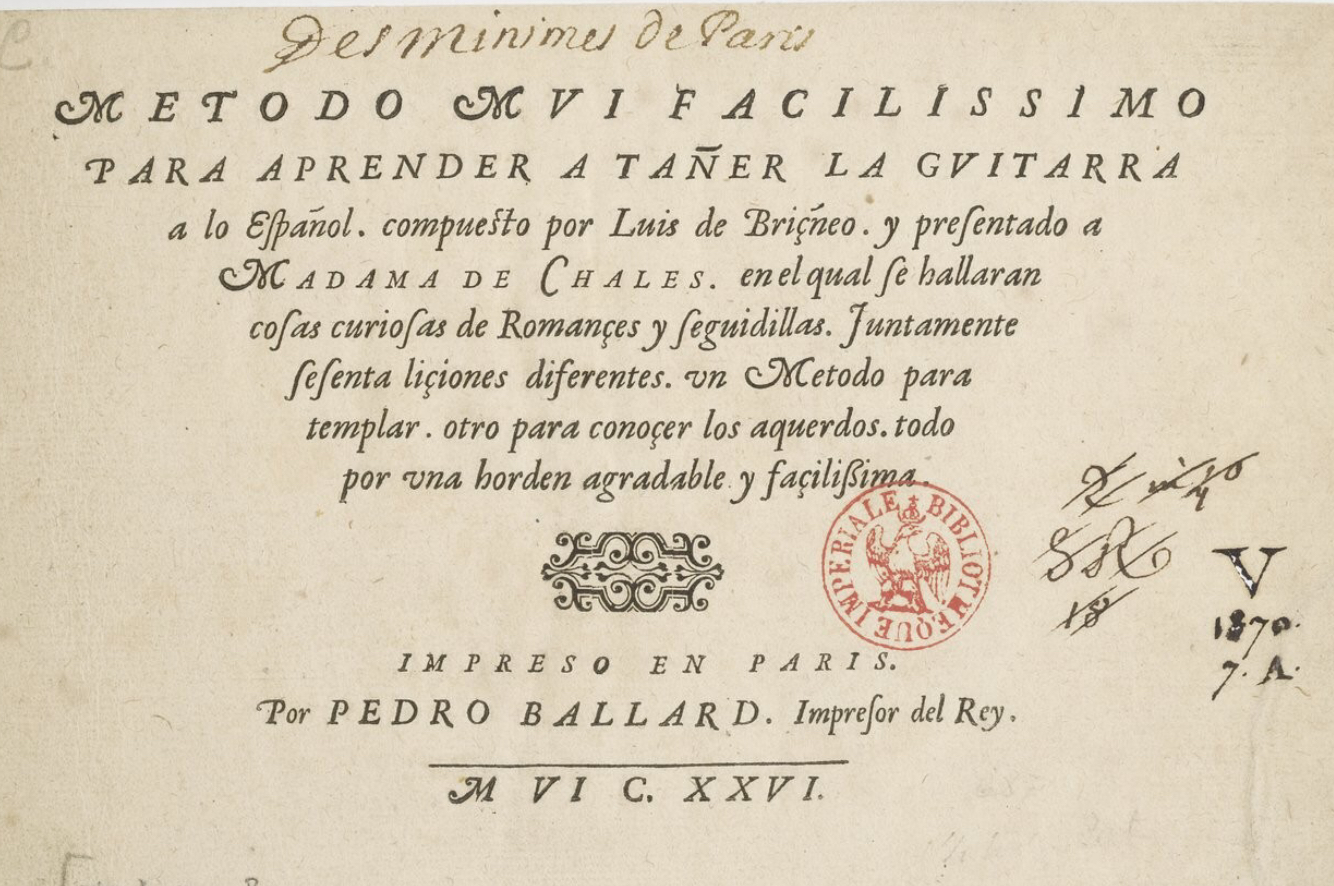 Des Minimes de Paris
METODO MVI FACILISSIMO
PARA APRENDER A TAÑER LA GVITARRA
a lo Eſpañol. compueſto por Luis de Briçñeo. y preſentado a
MADAMA DE CHALES. en el qual ſe hallaran
coſas curioſas de Romançes y ſeguidillas. Juntamente
ſeſenta liçiones diferentes. vn Metodo para
templar. otro para conoçer los aquerdos. todo
por vna horden agradable y façilißima.
BIBLIOTHEQUE IMPERIALE
V
1870.
7. A.
IMPRESO EN PARIS.
Por PEDRO BALLARD. Impreſor del Rey.
M VI C. XXVI.